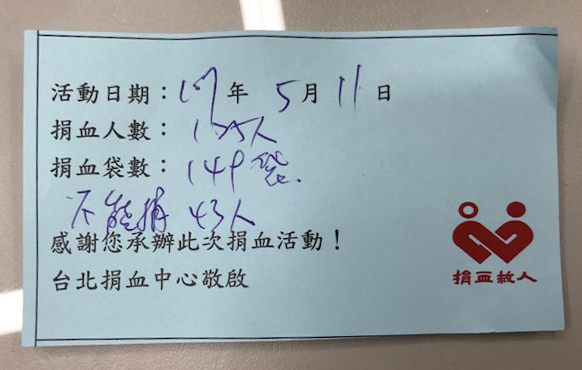 活動日期：107年 5月 11日
捐血人數：105人
捐血袋數：149袋
不能捐 43人
感謝您承辦此次捐血活動！
台北捐血中心敬啟
捐血救人